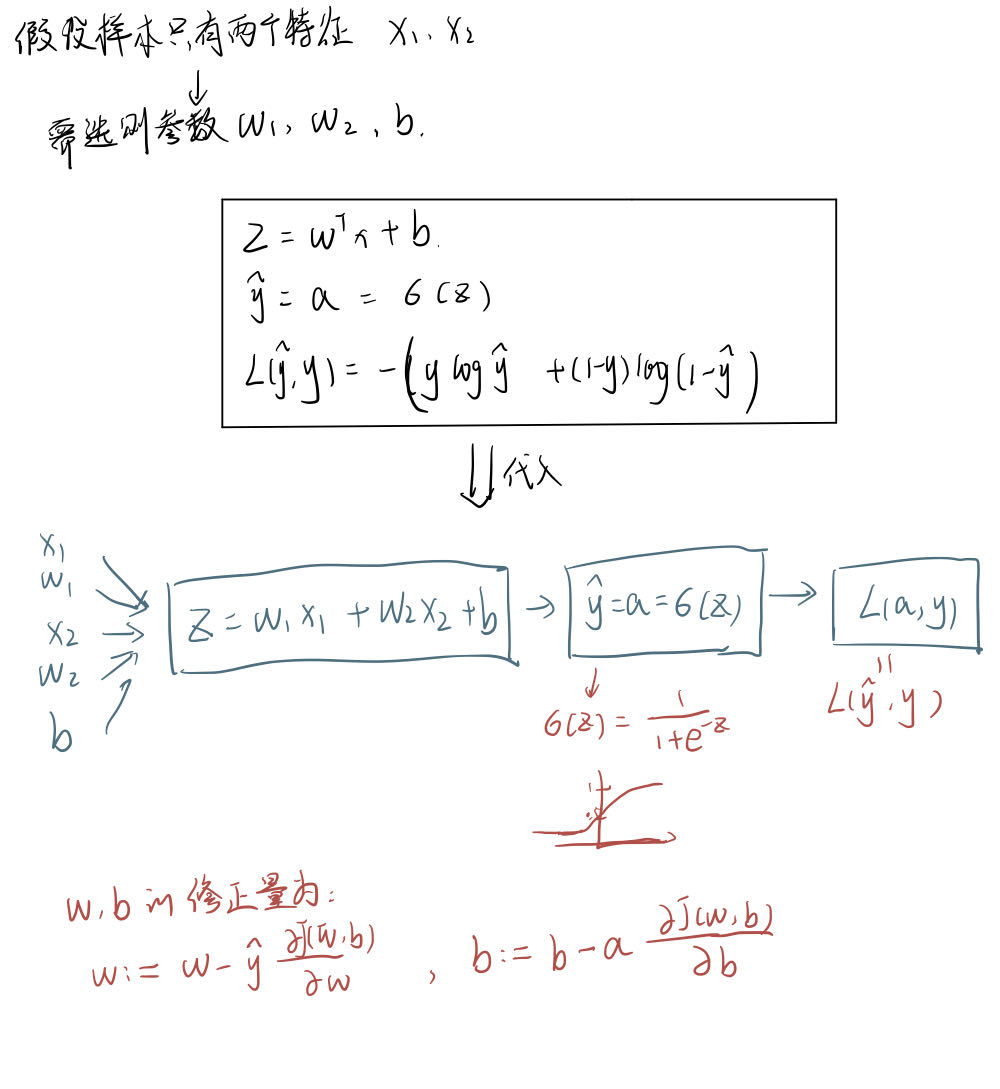 假设样本只有两个特征 x₁、x₂
↓
需选则参数 w₁, w₂, b.
z = wᵀx + b.
ŷ = a = σ(z)
L(ŷ, y) = -(y log ŷ + (1-y) log(1-ŷ))
⇓ 代入
x₁
w₁
x₂
w₂
b
z = w₁x₁ + w₂x₂ + b → ŷ = a = σ(z) → L(a, y)
↓
σ(z) = 1/(1+e^(-z))
=
L(ŷ, y)
1
.5
w, b 的修正量为:
w := w - ŷ ∂J(w,b)/∂w , b := b - a ∂J(w,b)/∂b